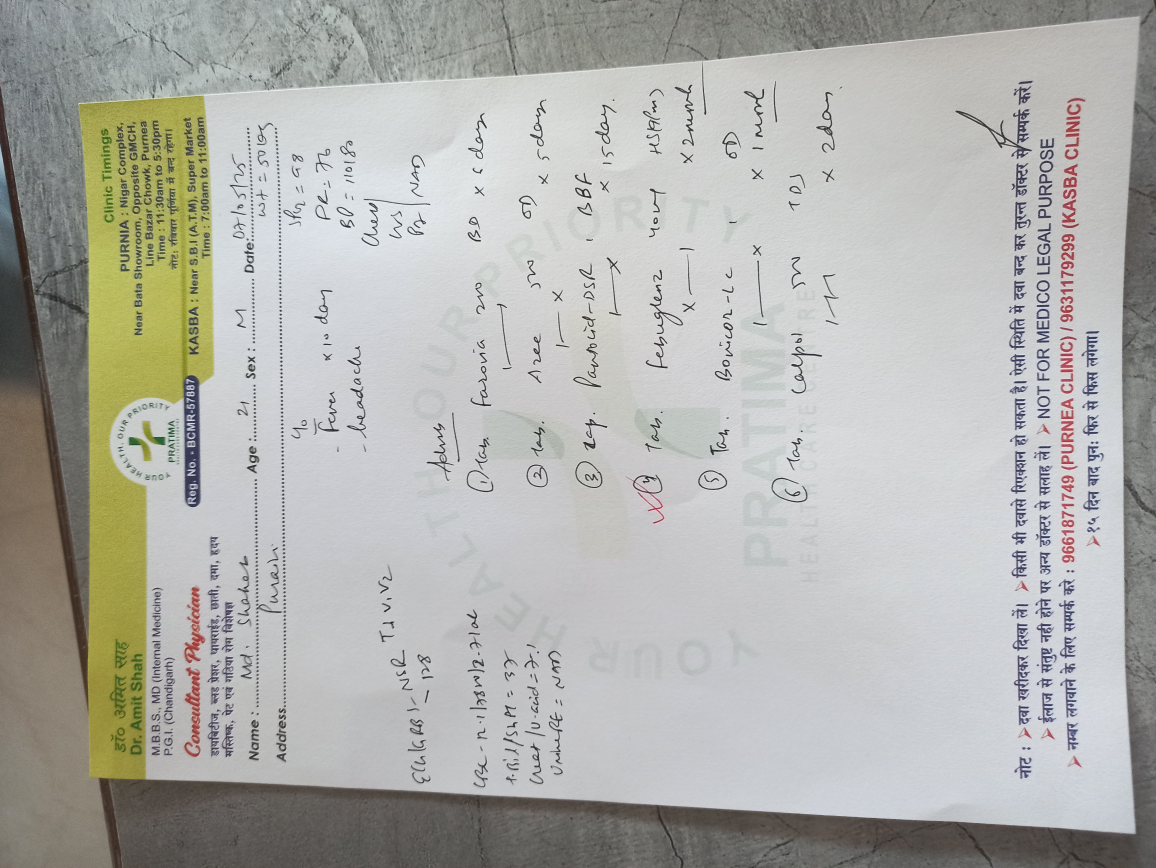 डॉ० अमित साह
Dr. Amit Shah
M.B.B.S., MD (Internal Medicine)
P.G.I. (Chandigarh)
Consultant Physician
डायबिटीज, ब्लड प्रेशर, थायराईड, छाती, दमा, हृदय
मस्तिष्क, पेट एवं गठिया रोग विशेषज्ञ
YOUR HEALTH, OUR PRIORITY
PRATIMA
Reg. No. - BCMR-57887
Clinic Timings
PURNIA : Nigar Complex,
Near Bata Showroom, Opposite GMCH,
Line Bazar Chowk, Purnea
Time : 11:30am to 5:30pm
नोट: रविवार पूर्णिया में बन्द रहेगा।
KASBA : Near S.B.I (A.T.M), Super Market
Time : 7:00am to 11:00am
Name : Md. Shaheb Age : 21 Sex : M Date: 07/05/25
Address
wt = 50 kg
Fever x 10 day
- headache
SPO2 = 98
PR = 76
BP = 110/80
Chest
CVS
P/A NAD
ECG (RBS) - NSR T↓ V1 V2
- 128
Advice
① Tab. Farovia 200 BD x 6 day
② Tab. Azee 500 OD x 5 day
③ Cap. Pantocid-DSR BBF x 15 day.
④ Tab. Febuglenz 40mg x 2 month
⑤ Tab. Bonicor-LC OD x 1 month
⑥ Tab. Calpol 500 TDS x 2 day.
U-acid = 7.1
Urine RE = NAD
YOUR HEALTH OUR PRIORITY
PRATIMA
HEALTH CARE CENTRE
नोट : ➤ दवा खरीदकर दिखा लें। ➤ किसी भी दवासे रिएक्शन हो सकता है। ऐसी स्थिति में दवा बन्द कर तुरन्त डॉक्टर से सम्पर्क करें।
➤ ईलाज से संतुष्ट नही होने पर अन्य डॉक्टर से सलाह लें। ➤ NOT FOR MEDICO LEGAL PURPOSE
➤ नम्बर लगवाने के लिए सम्पर्क करे : 9661871749 (PURNEA CLINIC) / 9631179299 (KASBA CLINIC)
➤ १५ दिन बाद पुनः फिर से फिस लगेगा।